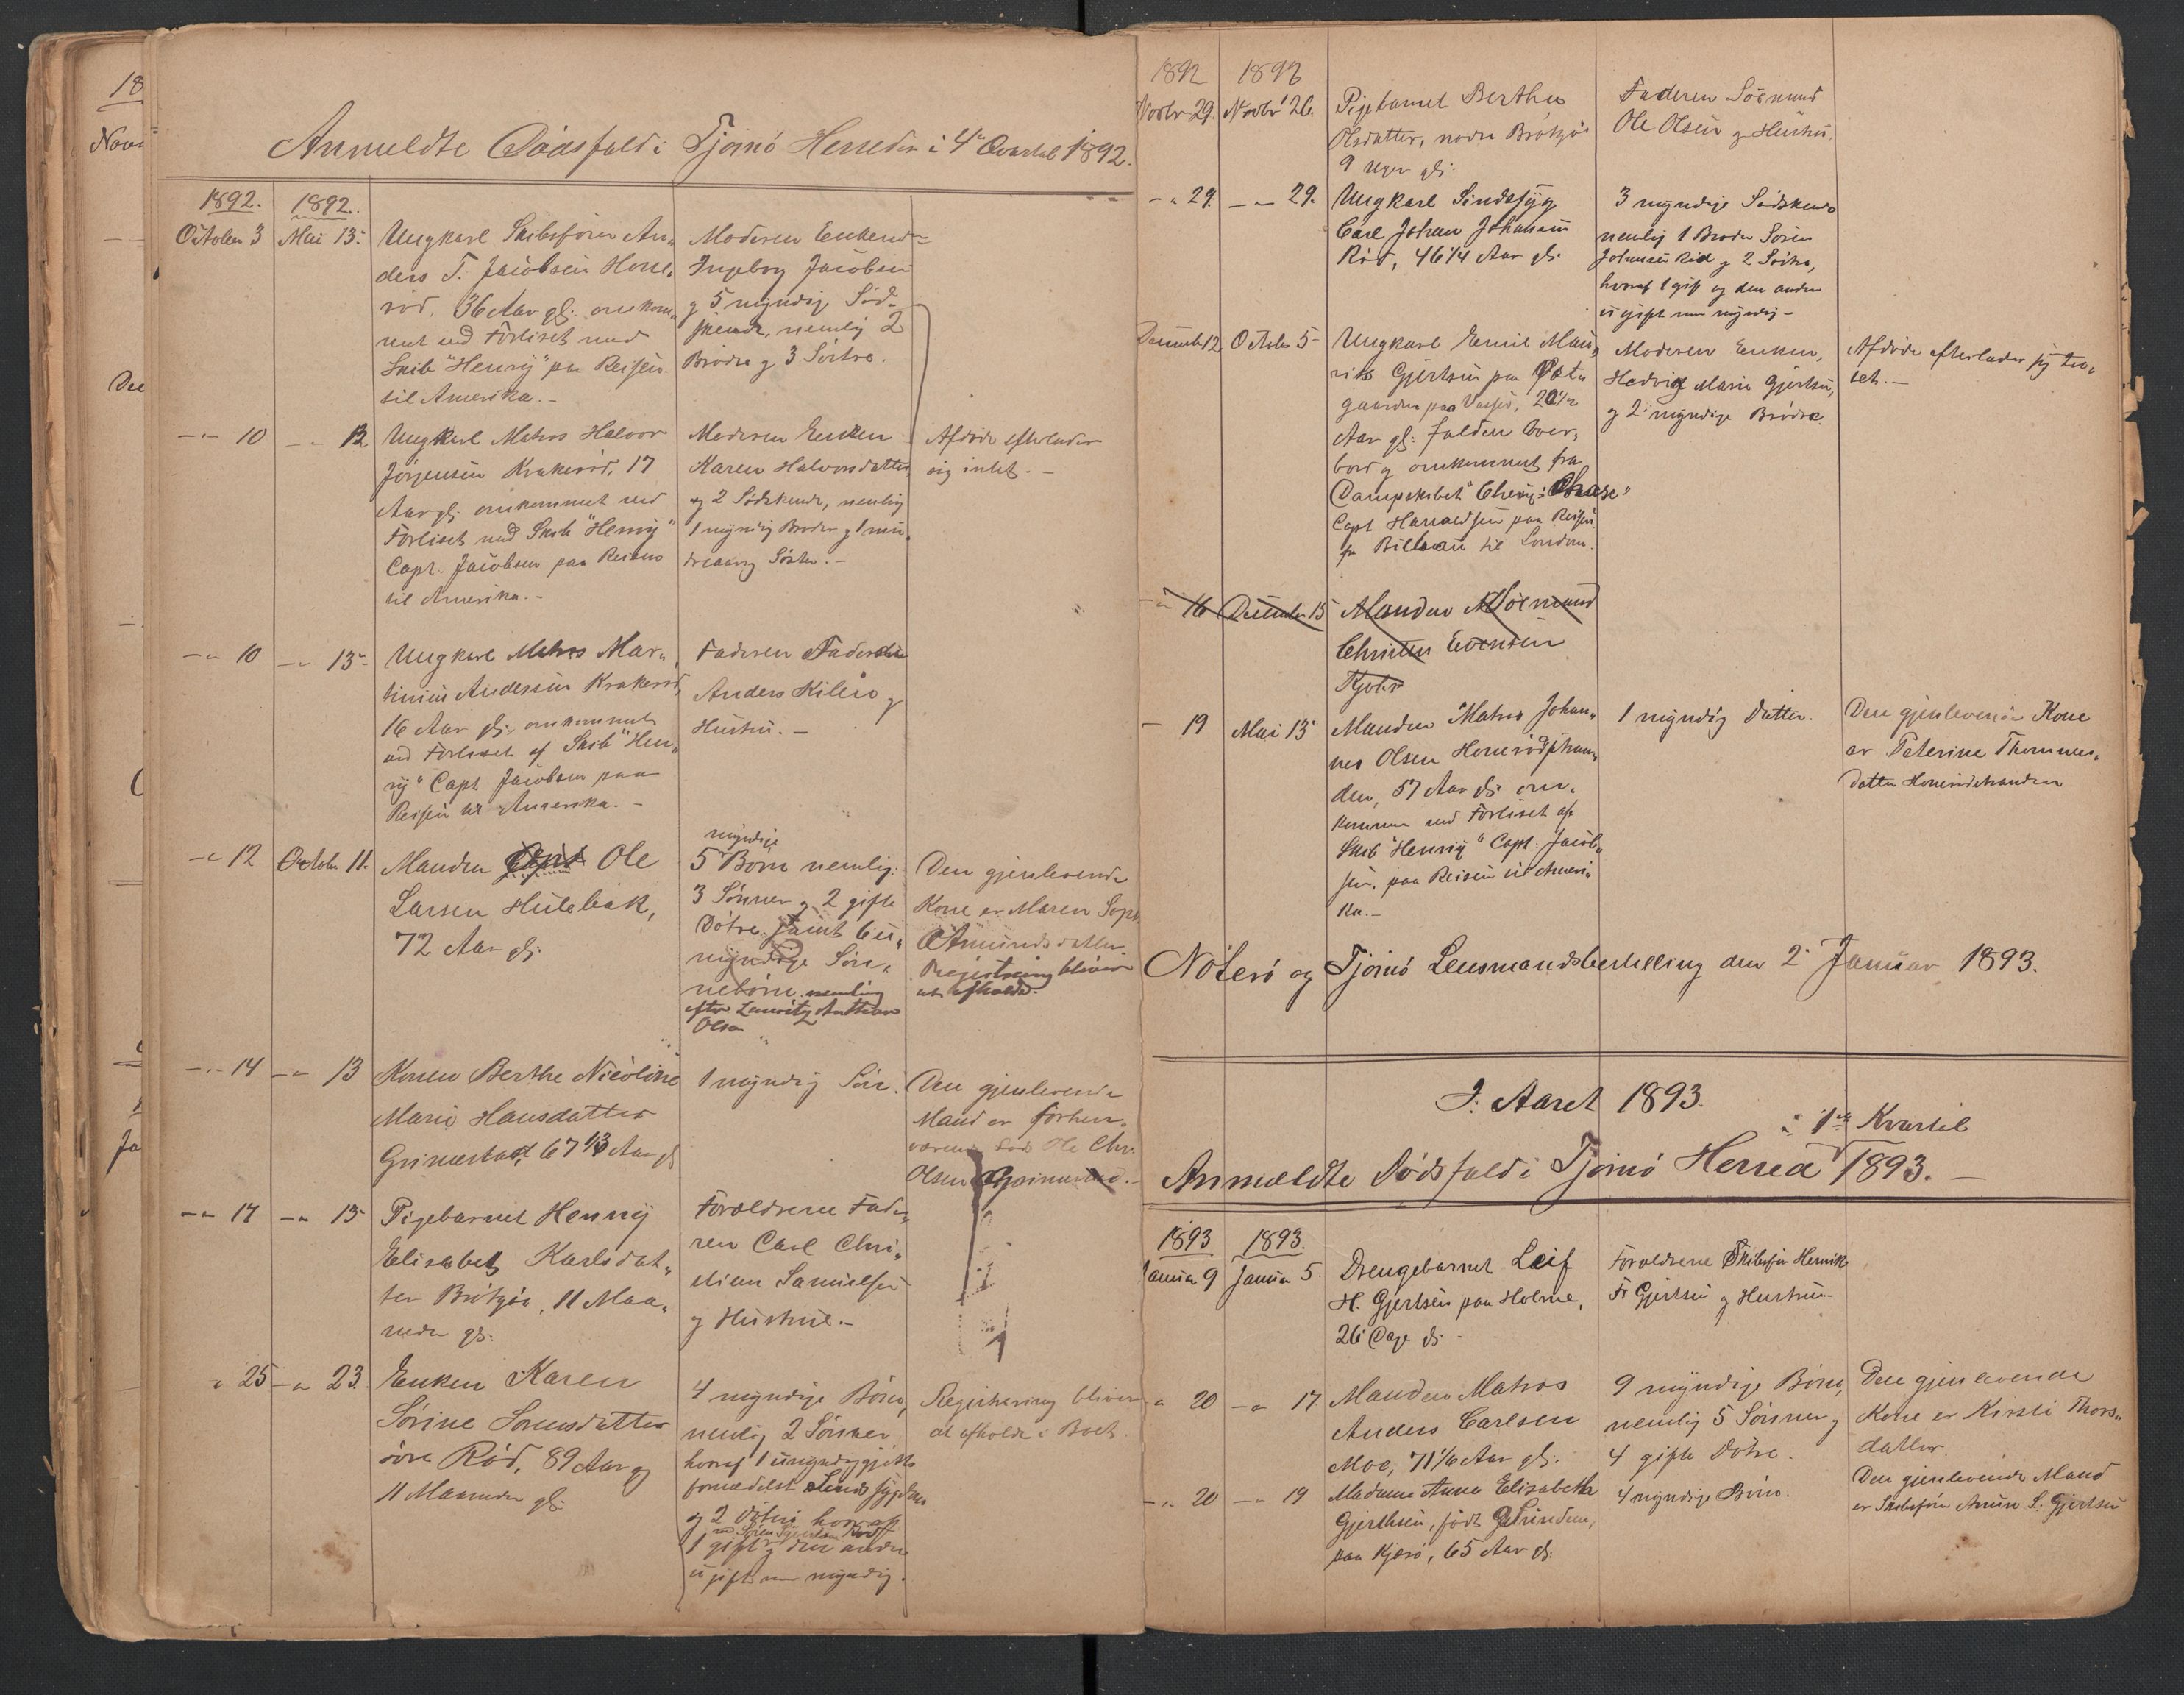 Anmeldte Dødsfald i Tjømø Herreder i 4de Qvartal 1892.
1892. 1892.
October 3 Mai 13.
Ungkarl Skibsfører An„
ders T. Jacobsen Hone„
rød, 36 Aar gl. omkom„
met ved Forliset med
Skib "Henrÿ" paa Reisen
til Amerika.-
Moderen Enken
Ingeborg Jacobsen
og 5 myndige Sød„
skende, nemlig 2
Brødre og 3 Søstre.
-"- 10 -"- 12
Ungkarl Matros Halvor
Jørgensen Krakerød, 17
Aar gl. omkommet ved
Forliset med Skib "Henrÿ"
Capt. Jacobsen paa Reisen
til Amerika.-
Moderen Enken
Karen Halvorsdatter
og 2 Sødskende, nemlig
1 myndig Broder og 1 min„
dreaarig Søster.-
Afdøde efterlader
sig intet.-
-"- 10 -"- 13
Ungkarl Matros Mar„
tinius Andersen Krakerød,
16 Aar gl. omkommet
ved Forliset af Skib "Hen„
rÿ" Capt. Jacobsen paa
Reisen til Amerika.-
Faderen Faderen
Anders Kilen og
Hustru.-
-"- 12 October 11.
Manden Ole
Larsen Hulebak,
72 Aar gl.
myndige
5 Børn nemlig
3 Sønner og 2 gifte
Døtre samt 6 u„
myndige Søn„
nebørn nemlig
efter Lauritz Anthon
Olsen
Den gjenlevende
Kone er Maren Soph.
Amundsdatter
Registrering bliver
at afholde.
-"- 14 -"- 13
Konen Berthe Nicoline
Marie Hansdatter
Grimestad, 67 1/3 Aar gl.
1 myndig Søn.
Den gjenlevende
Mand er forhen„
værende Lods Ole Chr.
Olsen Grimestad.-
-"- 17 -"- 15
Pigebarnet Henrÿ
Elisabet Karlsdat„
ter Brøtsjø, 11 Maa„
neder gl.
Forældrene Fade„
ren Carl Chri„
stian Samuelsen
og Hustrue.-
" 25 -"- 23.
Enken Karen
Sørine Sørensdatter
søre Rød, 89 Aar og
11 Maaneder gl.
4 myndige Børn,
nemlig 2 Sønner
hvoraf 1 umyndiggjort
formedelst Sindssygdom
og 2 Døtre hvoraf
1 gift og den anden
ugift men myndig.
Registrering bliver
at afholde i Boet.
1892 1892
Novbr 29. Novbr 26.
Pigebarnet Berthe
Olsdatter, nodre Brøtsjø
9 Uger gl.
Faderen Sømand
Ole Olsen og Hustru.
-"- 29. -"- 29.
Ungkarl Sindssyg
Carl Johan Johansen
Rød, 46 1/4 Aar gl.
3 myndige Sødskende
nemlig 1 Broder Søren
Johansen Rød og 2 Søstre,
hvoraf 1 gift og den anden
ugift men myndig-
December 12 October 5
Ungkarl Emil Mau„
rits Gjertsen paa Øst„
gaarden paa Vasser, 20 1/2
Aar gl. falden over„
bord og omkommet fra
Dampskibet "Chevy Chase"
Capt Haraldsen paa Reisen
fra Bilbau til London.
Moderen Enken,
Hedvig Marie Gjertsen,
og 2 myndige Brødre.
Afdøde efterlader sig In„
tet.-
-"- 16 December 15
Manden Sømand
Christen Evensen
- 19 Mai 13
Manden Matros Johan„
nes Olsen Honerødstran„
den, 57 Aar gl. om„
kommen ved Forliset af
Skib "Henrÿ" Capt. Jacob„
sen, paa Reisen til Ameri„
ka.-
1 myndig Datter.
Den gjenlevende Kone
er Peterine Thommes„
datter Honerødstranden
Nøterø og Tjømø Lensmandsbestilling den 2 Januar 1893.
I Aaret 1893.
i 1ste Kvartal
Anmeldte Dødsfald i Tjømø Herred 1893.-
1893 1893.
Januar 9 Januar 5.
Drengebarnet Leif
H. Gjertsen paa Holme,
26 Dage gl.-
Forældrene Skibsfør Henrik
Fr Gjertsen og Hustru.-
" 20 -"- 17
Manden Matros
Anders Carlsen
Moe, 71 1/6 Aar gl.
9 myndige Børn,
nemlig 5 Sønner og
4 gifte Døtre.
Den gjenlevende
Kone er Kirsti Thors„
datter.
-"- 20 -"- 19
Madame Anna Elisabeth
Gjerthsen, født
paa Kjærø, 65 Aar gl.
4 myndige Børn.
Den gjenlevende Mand
er Skibsfører Anun S. Gjertsen